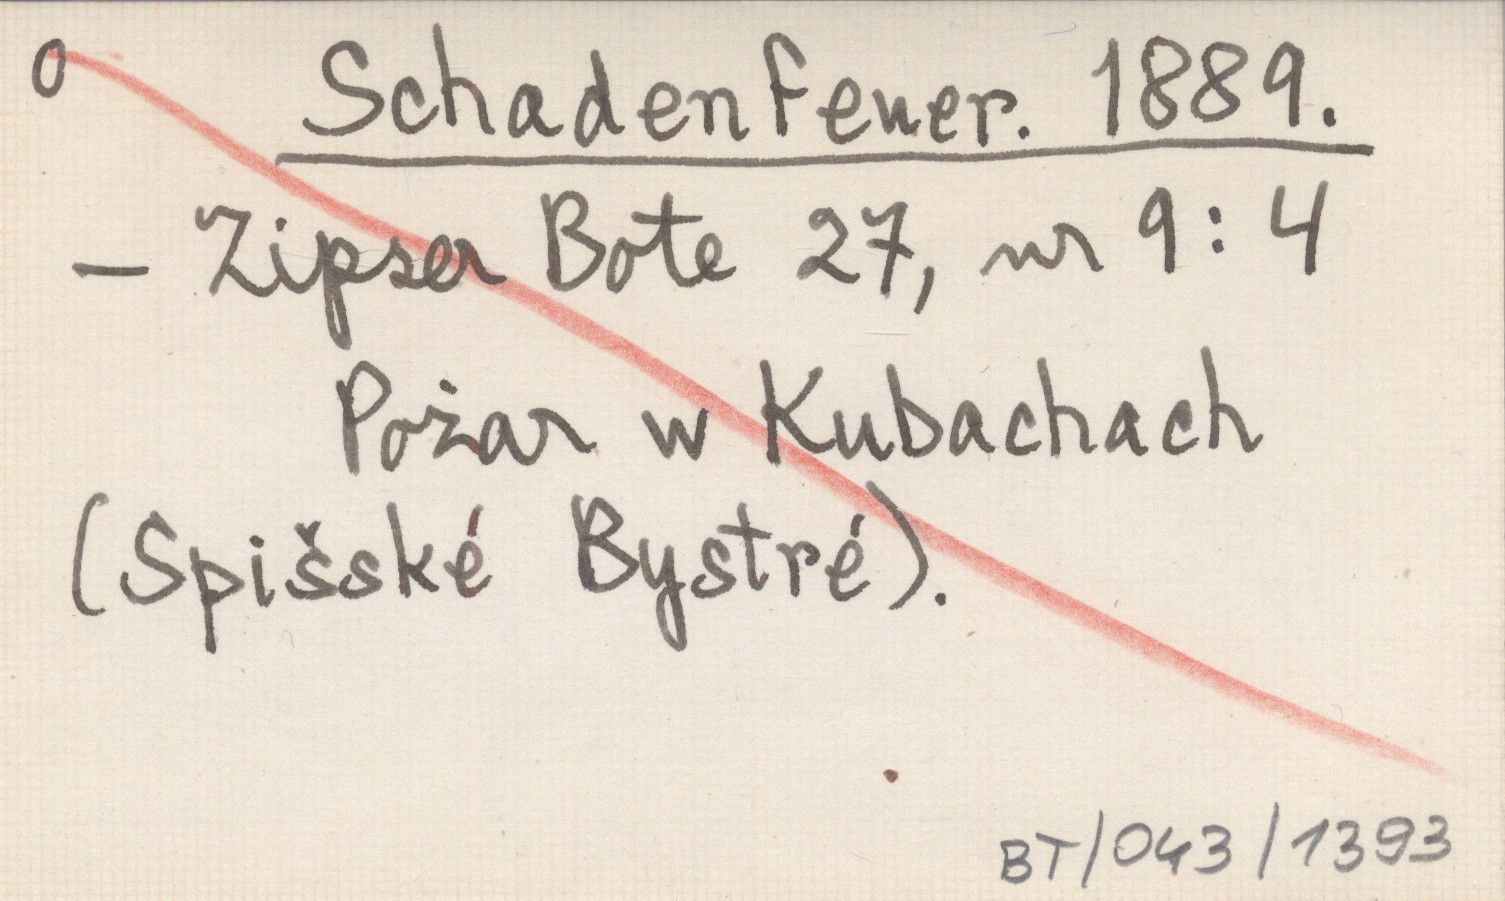 0 Schadenfeuer. 1889.
- Zipser Bote 27, nr 9: 4
Pożar w Kubachach
(Spišské Bystré).
BT/043/1393